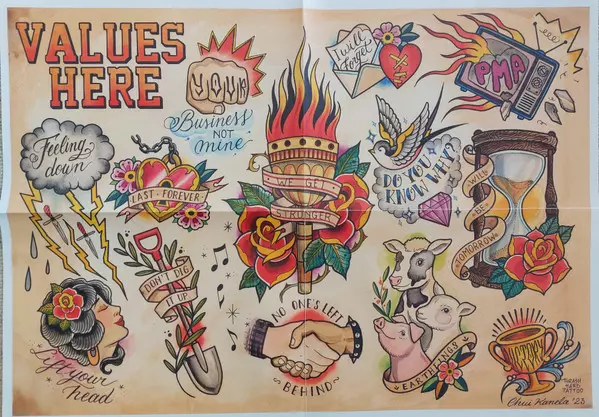 VALUES
HERE
YOUR
Business
NOT
mine
I will
Forget
PMA
Feeling
down
LAST FOREVER
WE GET
STRONGER
DO YOU
KNOW WHY?
WILL
BE
TOMORROW
DON'T DIG
IT UP
NO ONE'S LEFT
BEHIND
EARTHLINGS
VICTORY
Lift your
head
TATTOO
Chris Kanela '23